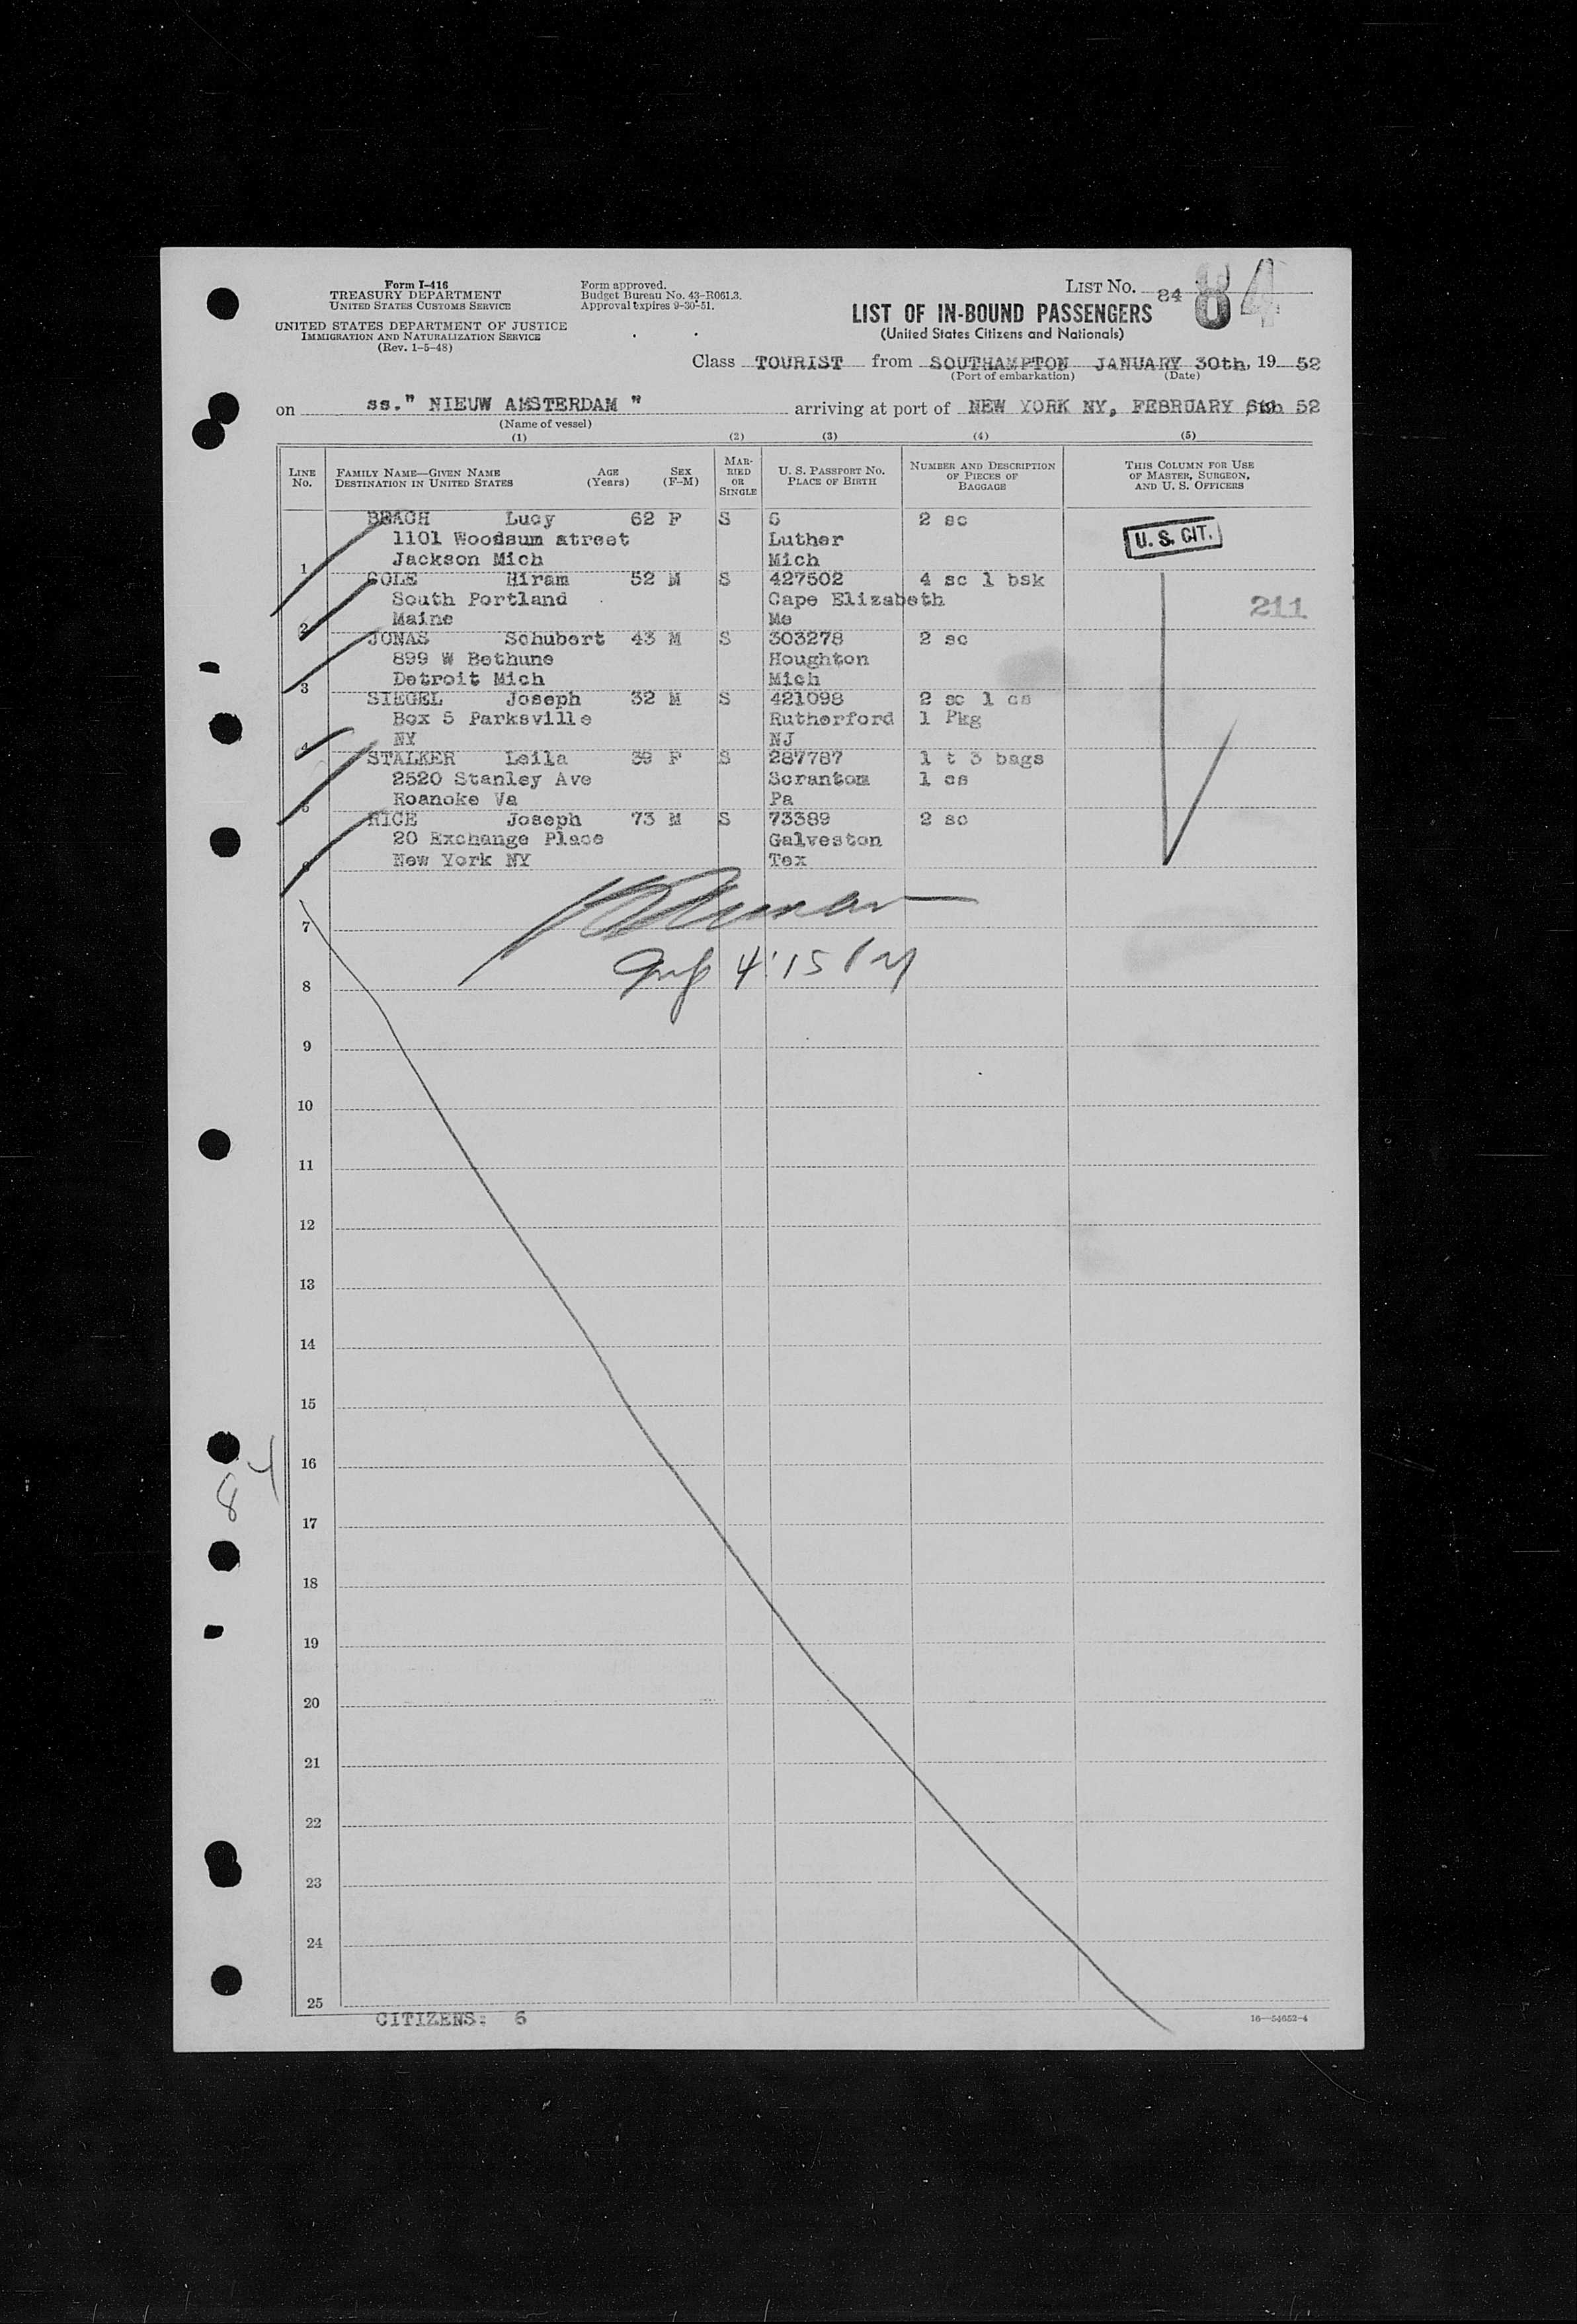 Form I-416
TREASURY DEPARTMENT
UNITED STATES CUSTOMS SERVICE
UNITED STATES DEPARTMENT OF JUSTICE
IMMIGRATION AND NATURALIZATION SERVICE
(Rev. 1-5-48)
Form approved.
Budget Bureau No. 43-R061.3.
Approval expires 9-30-51.
LIST No. 84 84
LIST OF IN-BOUND PASSENGERS
(United States Citizens and Nationals)
Class TOURIST from SOUTHAMPTON JANUARY 30th, 19 52
(Port of embarkation) (Date)
on ss." NIEUW AMSTERDAM " arriving at port of NEW YORK NY, FEBRUARY 52
(Name of vessel)
(1) (2) (3) (4) (5)
LINE No. FAMILY NAME—GIVEN NAME DESTINATION IN UNITED STATES AGE (Years) SEX (F-M) MARRIED OR SINGLE U. S. PASSPORT No. PLACE OF BIRTH NUMBER AND DESCRIPTION OF PIECES OF BAGGAGE THIS COLUMN FOR USE OF MASTER, SURGEON, AND U. S. OFFICERS
BEACH Lucy 62 F S 6 2 sc
1101 Woodsum street Luther U. S. CIT.
1 Jackson Mich Mich
COLE Hiram 52 M S 427502 4 sc 1 bsk
South Portland Cape Elizabeth 211
2 Maine Me
JONAS Schubert 43 M S 303278 2 sc
899 W Bethune Houghton
3 Detroit Mich Mich
SIEGEL Joseph 32 M S 421098 2 sc 1 cs
Box 5 Parksville Rutherford 1 Pkg
4 NY NJ
STALKER Leila 39 F S 287787 1 t 3 bags
2520 Stanley Ave Scranton 1 cs
5 Roanoke Va Pa
RICE Joseph 73 M S 73389 2 sc
20 Exchange Place Galveston
6 New York NY Tex
7
4:15 PM
8
9
10
11
12
13
14
15
16
84
17
18
19
20
21
22
23
24
25
CITIZENS: 6
16—54652-4